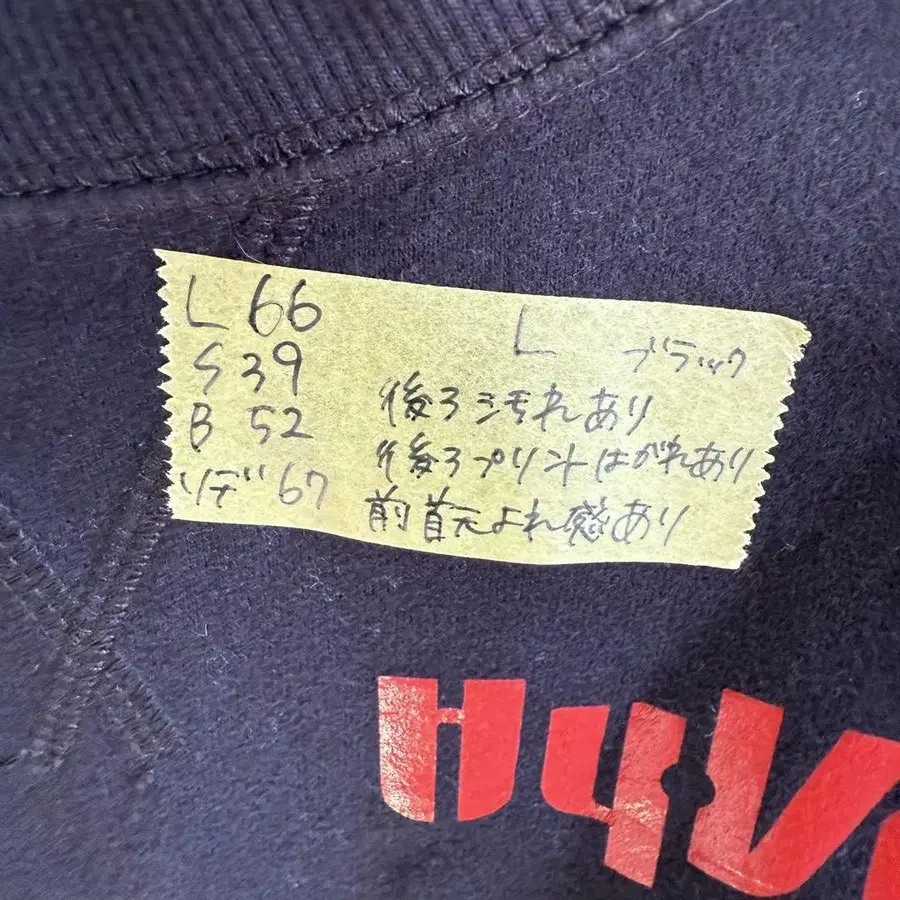 L 66
S 39
B 52
ソデ 67
L ブラック
後ろ汚れあり
後ろプリントはがれあり
前首元よれ感あり